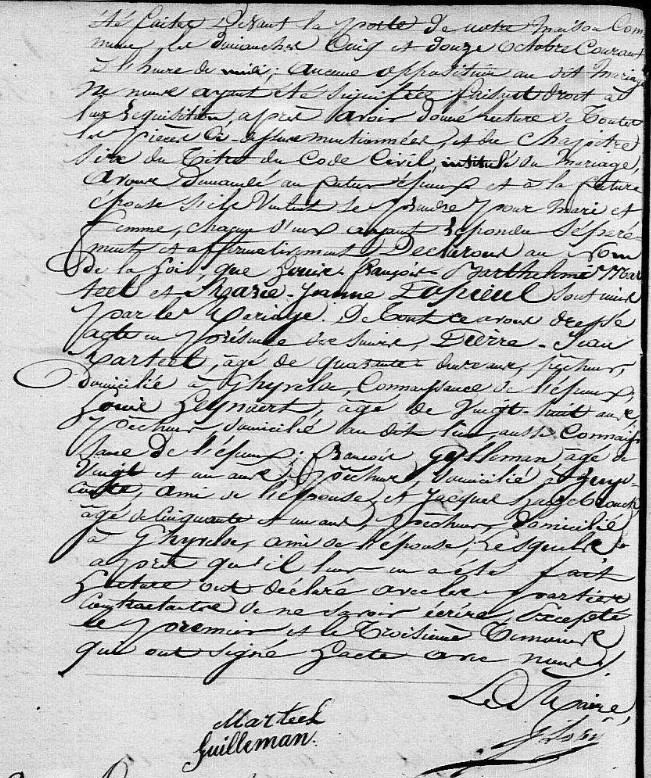 été faites devant la porte de notre maison Com
mune, les dimanches Cinq et douze octobre Courant
à l'heure de midi; aucune opposition au dit mariage
ne nous ayant été signifiée, faisant droit à
leur réquisition, après avoir donné lecture de toutes
les pièces ci dessus mentionnées, et du Chapitre
six du titre du Code Civil, intitulé du mariage,
avons demandé au futur époux et à la future
épouse s'ils veulent se prendre pour mari et
femme, chacun d'eux ayant répondu séparé-
ment et affirmativement, Déclarons au nom
de la loi, que Louis-François-Barthélemi Mar
teel et Marie-Jeanne sont unis
par le Mariage. De tout ce avons dressé
acte en présence des sieurs, Pierre-Jean
Marteel, âgé de quarante-deux ans, pêcheur,
domicilié à Ghyvelde, Connaissance de l'époux,
Louis, âgé de Vingt-huit ans,
pêcheur, domicilié au dit lieu, aussi Connais
sance de l'époux; François Guilleman, âgé de
Vingt et un ans, pêcheur, domicilié à
, ami de l'épouse, et Jacques
âgé de Cinquante et un ans, pêcheur, domicilié
à Ghyvelde, ami de l'épouse, Lesquels
après qu'il leur en a été fait
Lecture ont déclaré avec les parties
Contractantes de ne savoir écrire, Excepté
le premier et le troisième témoins
qui ont signé l'acte avec nous.
Le Maire,
Marteel
Guilleman.